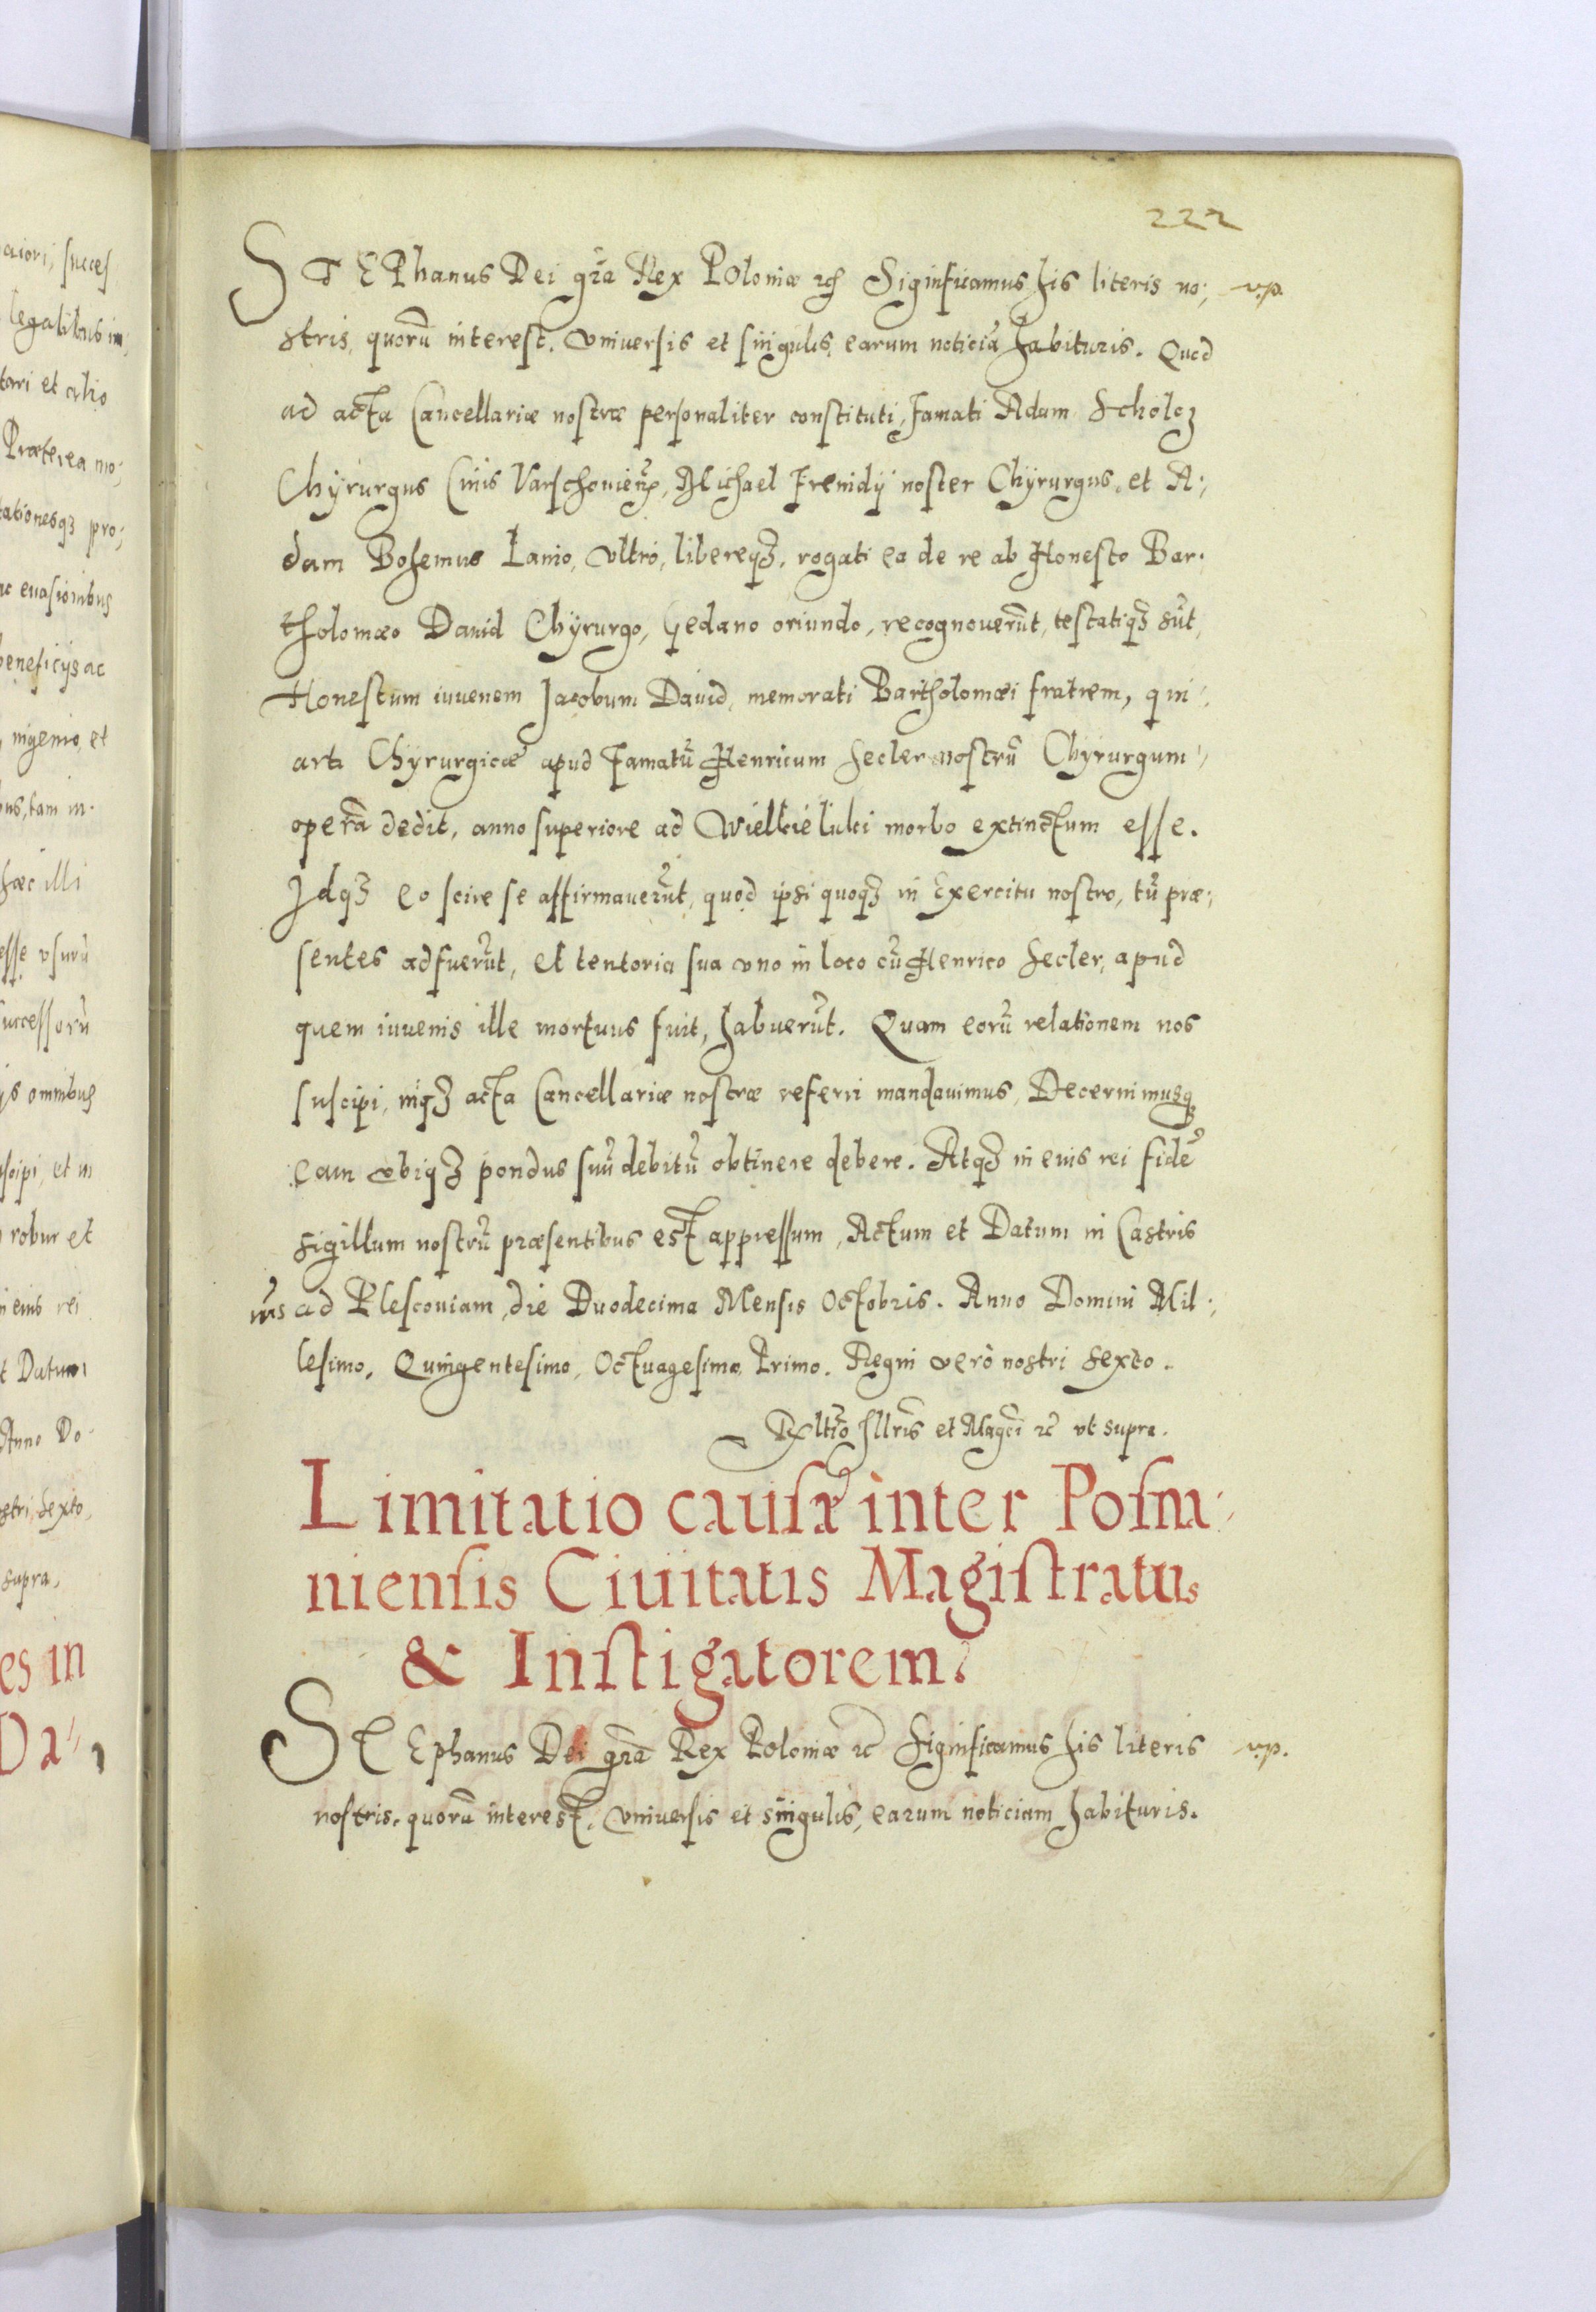 222
STEPhanus Dei gr̃a Rex Poloniæ ⁊c̃ Siginficamus his literis no;
v.p.
stris, quorũ interest. vniuersis et singulis, earum noticiã habituris. Quod
ad acta Cancellariæ nostræ personaliter constituti, Famati Adam Scholcz
Chÿrurgus Ciuis Varschouien̄, Michael Frenidÿ noster Chÿrurgus, et A;
dam Bohemus Lanio, vltro, libereqꝫ, rogati ea de re ab Honesto Bar.
tholomæo Dauid Chÿrurgo, Gedano oriundo, recognouerũt, testatiqꝫ sũt,
Honestum iuuenem Jacobum Dauid, memorati Bartholomæi fratrem, qui
arti Chÿrurgicæ apud Famatũ Henricum Secler nostrũ Chÿrurgum
operã dedit, anno superiore ad Wielkieluki morbo extinctum esse.
Idqꝫ eo scire se affirmauerũt, quod ipsi quoqꝫ in Exercitu nostro, tũ præ;
sentes adfuerũt, et tentoria sua vno in loco cũ Henrico Secler, apud
quem iuuenis ille mortuus fuit, habuerũt. Quam eorũ relationem nos
suscipi, inqꝫ acta Cancellariæ nostræ referri mandauimus, Decernimusqꝫ
eam vbiqꝫ pondus suũ debitũ obtinere debere. Atqꝫ in euis rei fidẽ
sigillum nostrũ præsentibus est appressum, Actum et Datum in Castris
nr̃is ad Plescouiam, die Duodecima Mensis Octobris. Anno Domini Mil;
lesimo, Quingentesimo, Octuagesimo, Primo. Regni verò nostri sexto.
Rꝫltĩo Illr̃is et Magc̃i ⁊c̃ vt supra.
Limitatio causæ inter Posna;
niensis Ciuitatis Magistratus
& Instigatorem.
STEphanus Dei gr̃a Rex Poloniæ ⁊c̃ Siginficamus his literis
v.p.
nostris, quorũ interest, vniuersis et singulis, earum noticiam habituris.